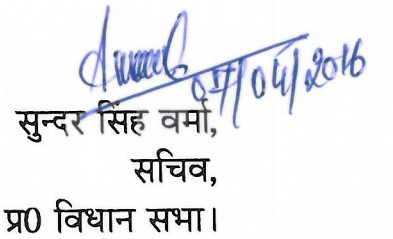 07/04/2016
सुन्दर सिंह वर्मा,
सचिव,
प्र0 विधान सभा।